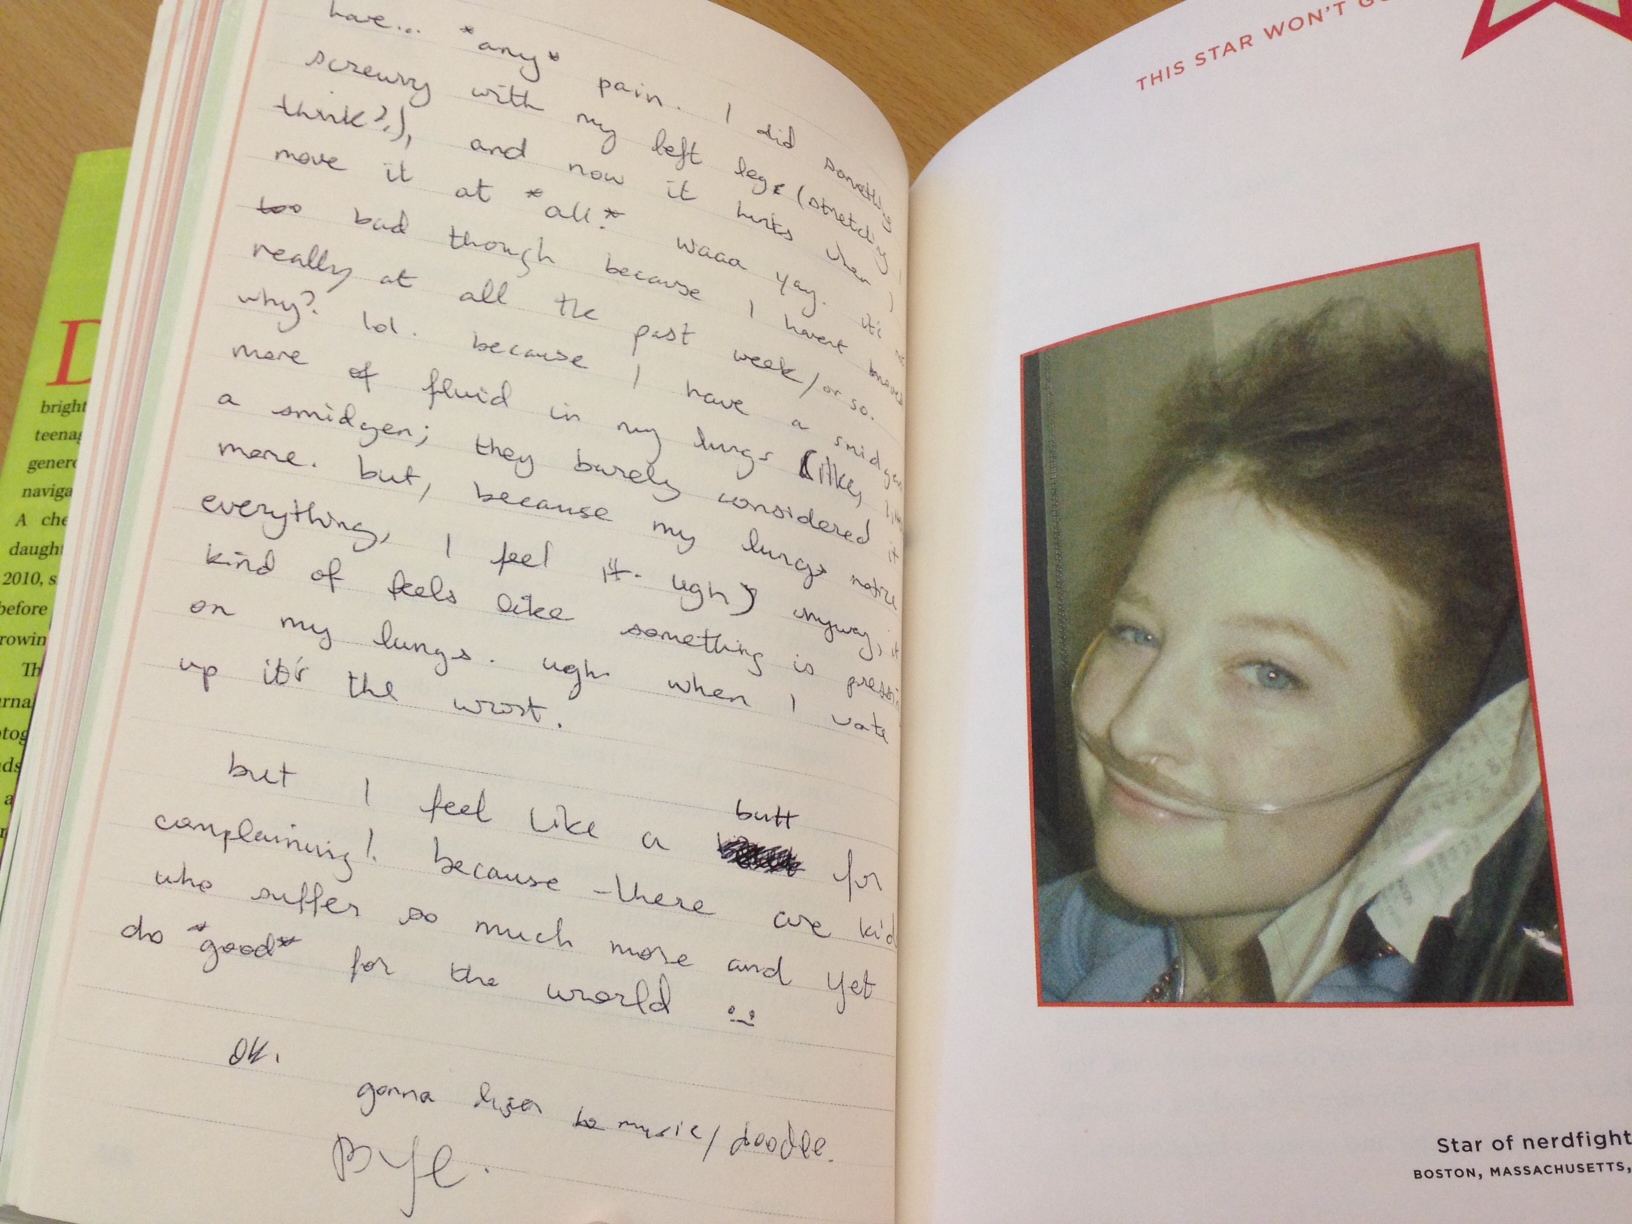 D
bright
teenag
genero
naviga
A che
daught
2010, s
before
rowin
Th
urna
otog
nds
a
have... *any* pain. I did something
screwy with my left leg (stretching I
think?.), and now it hurts when I
move it at *all* waaa yay. it's not
too bad though because I havent moved
really at all the past week/or so.
why? lol. because I have a smidgen
more of fluid in my lungs (like, like
a smidgen; they barely considered it
more. but, because my lungs notice
everything, I feel it. ugh) anyway, it
kind of feels like something is pressi
on my lungs. ugh. when I wake
up it's the wrost.
but I feel like a butt for
complaining!. because - there are kid
who suffer so much more and yet
do *good* for the world
OK.
gonna lisen to music/doodle.
Bye.
THIS STAR WON'T G
Star of nerdfight
BOSTON, MASSACHUSETTS,